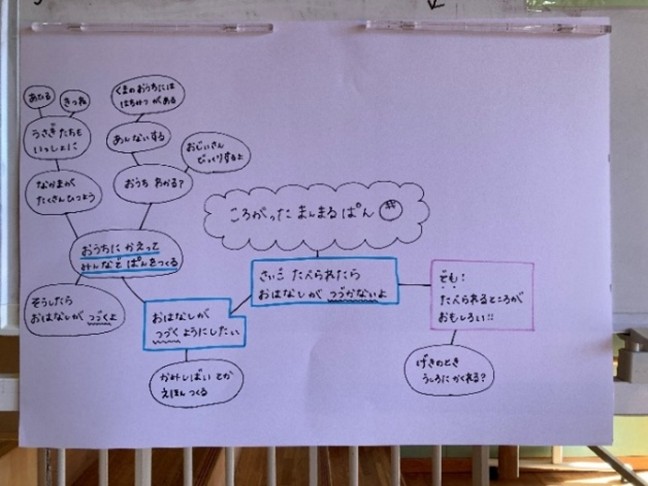 あひる
きつね
うさぎたちも
いっしょに
なかまが
たくさんひつよう
くまのおうちには
はちみつがある
あんないする
おじいさん
びっくりするよ
おうち わかる?
おうちに かえって
みんなで ぱんをつくる
そうしたら
おはなしが つづくよ
ころがった まんまる ぱん
さいご たべられたら
おはなしが つづかないよ
おはなしが
つづく ようにしたい
かみしばい とか
えほん つくる
でも!
たべられるところが
おもしろい!!
げきのとき
うしろに かくれる?